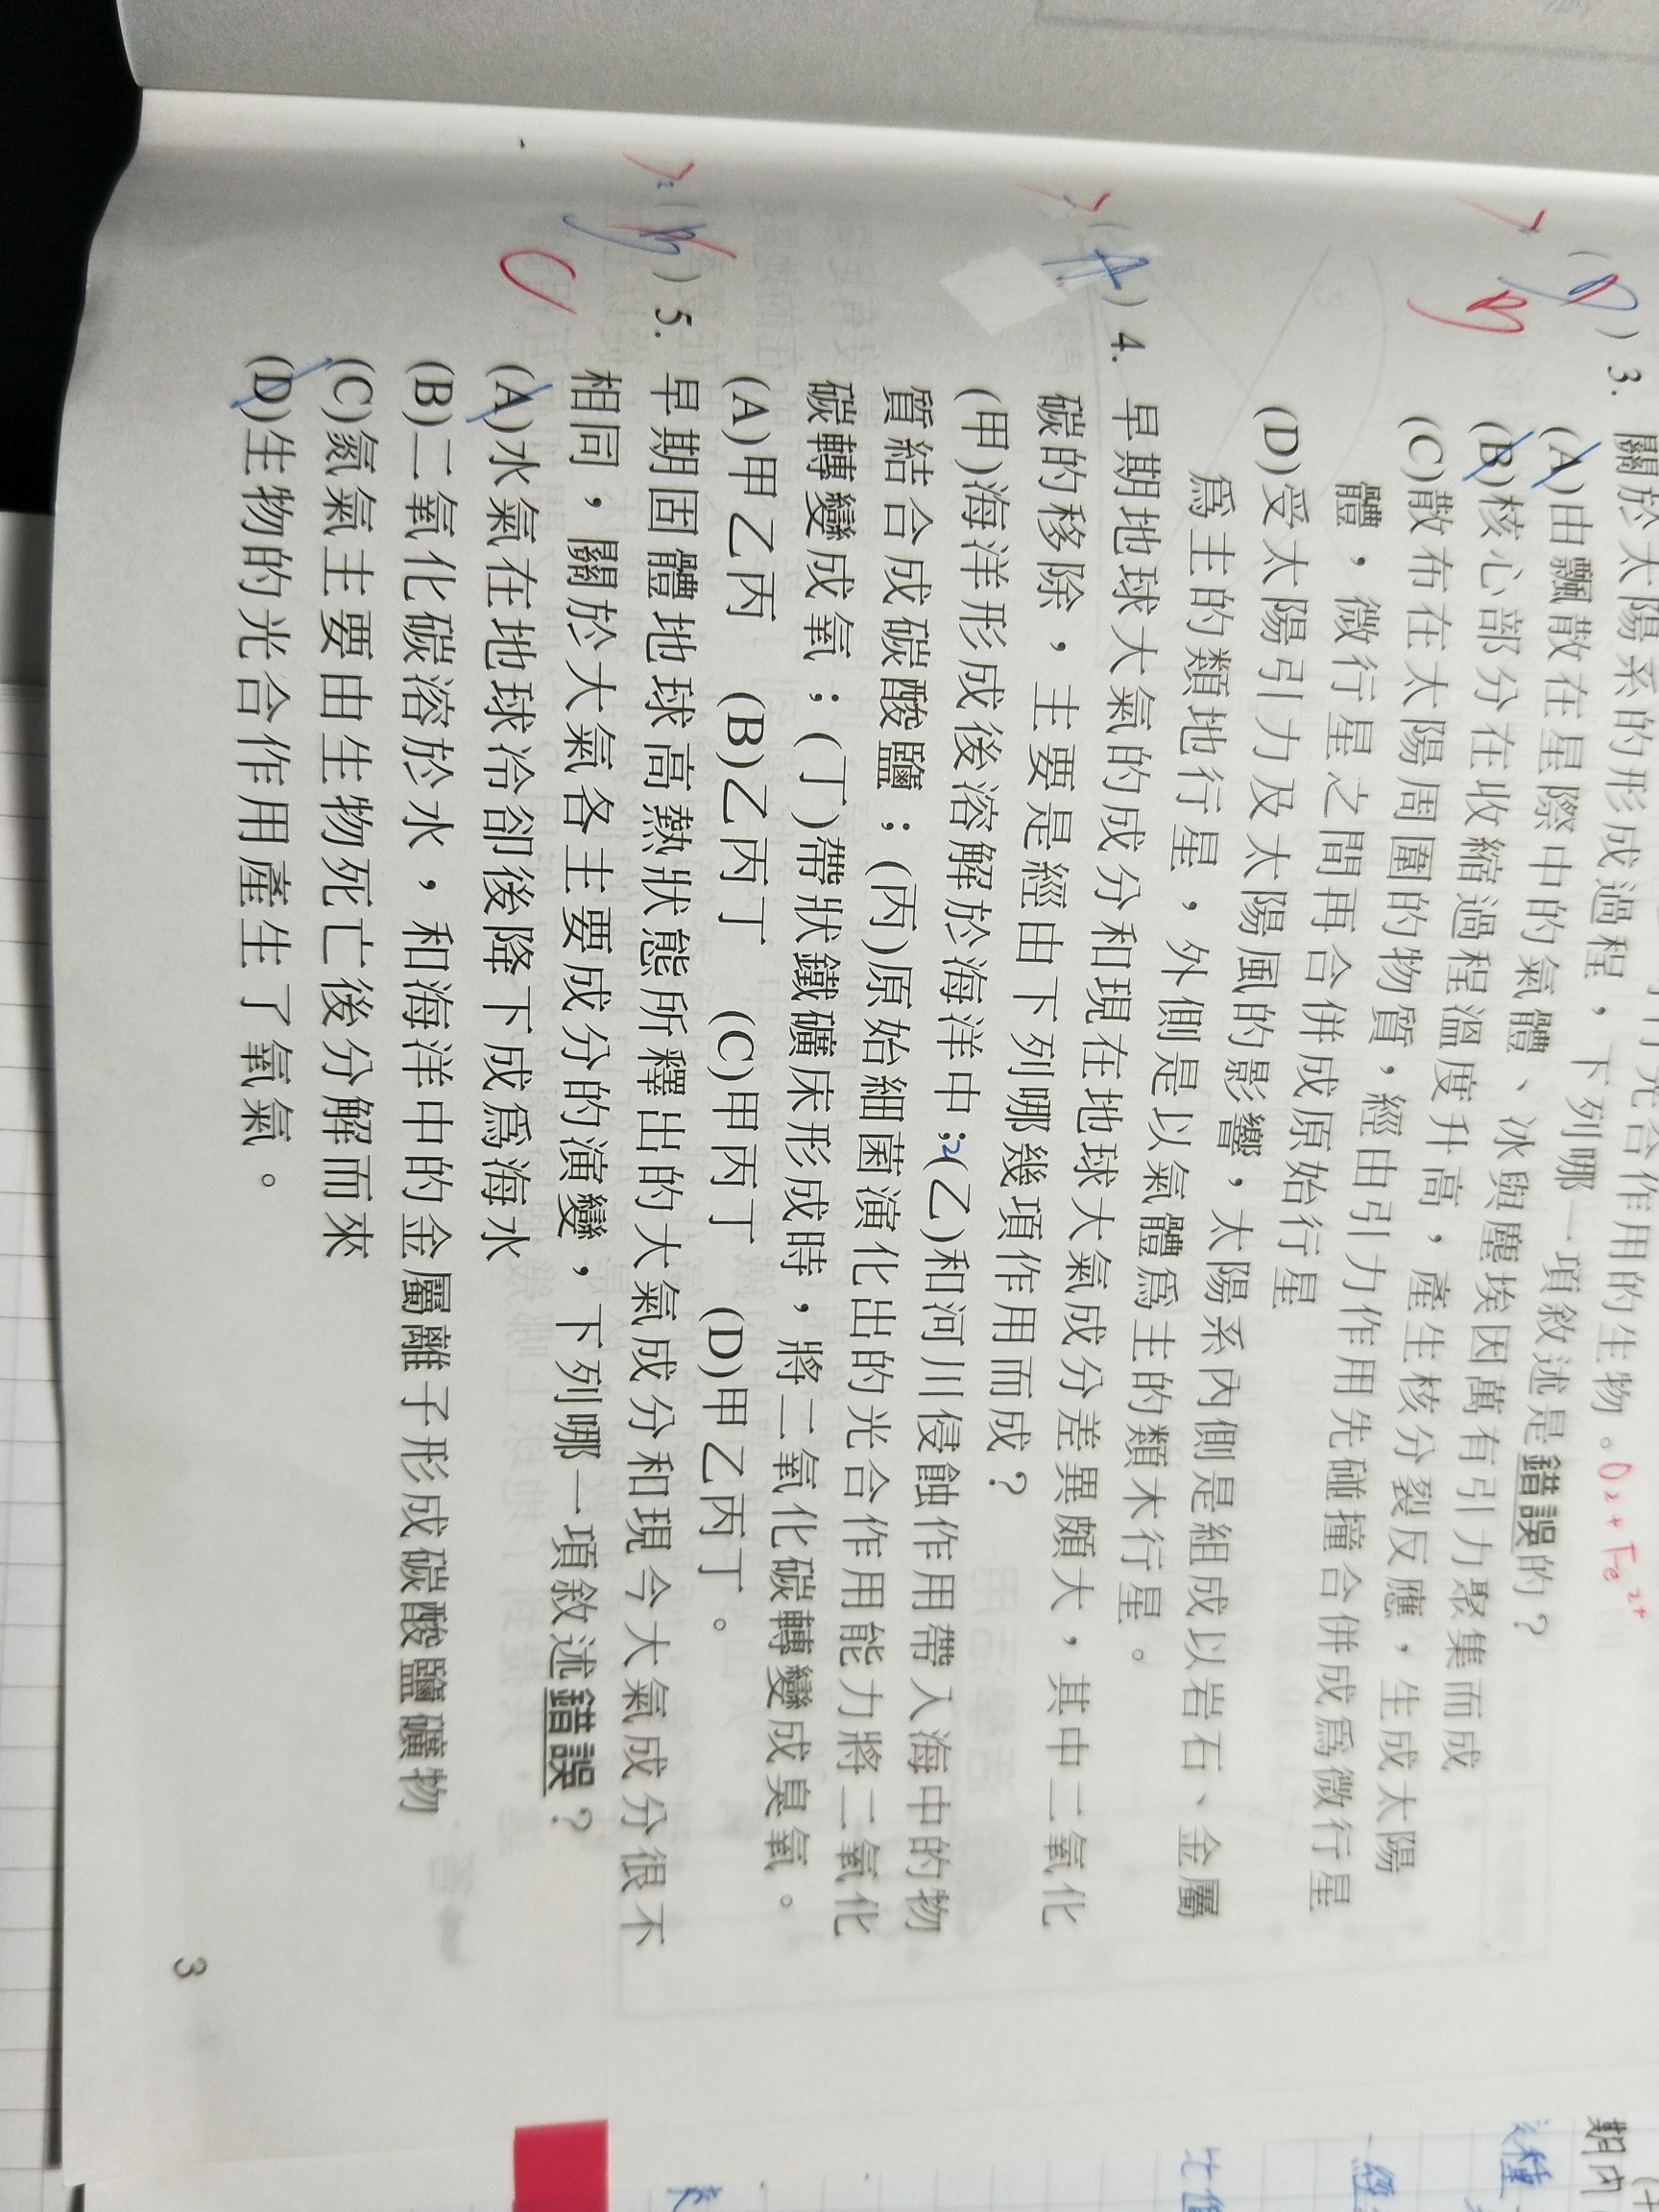 行光合作用的生物。O₂+Fe²⁺
(D) 3. 關於太陽系的形成過程，下列哪一項敘述是錯誤的？
B
(A)由飄散在星際中的氣體、冰與塵埃因萬有引力聚集而成
(B)核心部分在收縮過程溫度升高，產生核分裂反應，生成太陽
(C)散布在太陽周圍的物質，經由引力作用先碰撞合併成為微行星
體，微行星之間再合併成原始行星
(D)受太陽引力及太陽風的影響，太陽系內側是組成以岩石、金屬
為主的類地行星，外側則是以氣體為主的類木行星。
(A) 4. 早期地球大氣的成分和現在地球大氣成分差異頗大，其中二氧化
碳的移除，主要是經由下列哪幾項作用而成？
(甲)海洋形成後溶解於海洋中；(乙)和河川侵蝕作用帶入海中的物
質結合成碳酸鹽；(丙)原始細菌演化出的光合作用能力將二氧化
碳轉變成氧；(丁)帶狀鐵礦床形成時，將二氧化碳轉變成臭氧。
(A)甲乙丙　(B)乙丙丁　(C)甲丙丁　(D)甲乙丙丁。
(B) 5. 早期固體地球高熱狀態所釋出的大氣成分和現今大氣成分很不
相同，關於大氣各主要成分的演變，下列哪一項敘述錯誤？
C
(A)水氣在地球冷卻後降下成為海水
(B)二氧化碳溶於水，和海洋中的金屬離子形成碳酸鹽礦物
(C)氮氣主要由生物死亡後分解而來
(D)生物的光合作用產生了氧氣。
3
期內
種